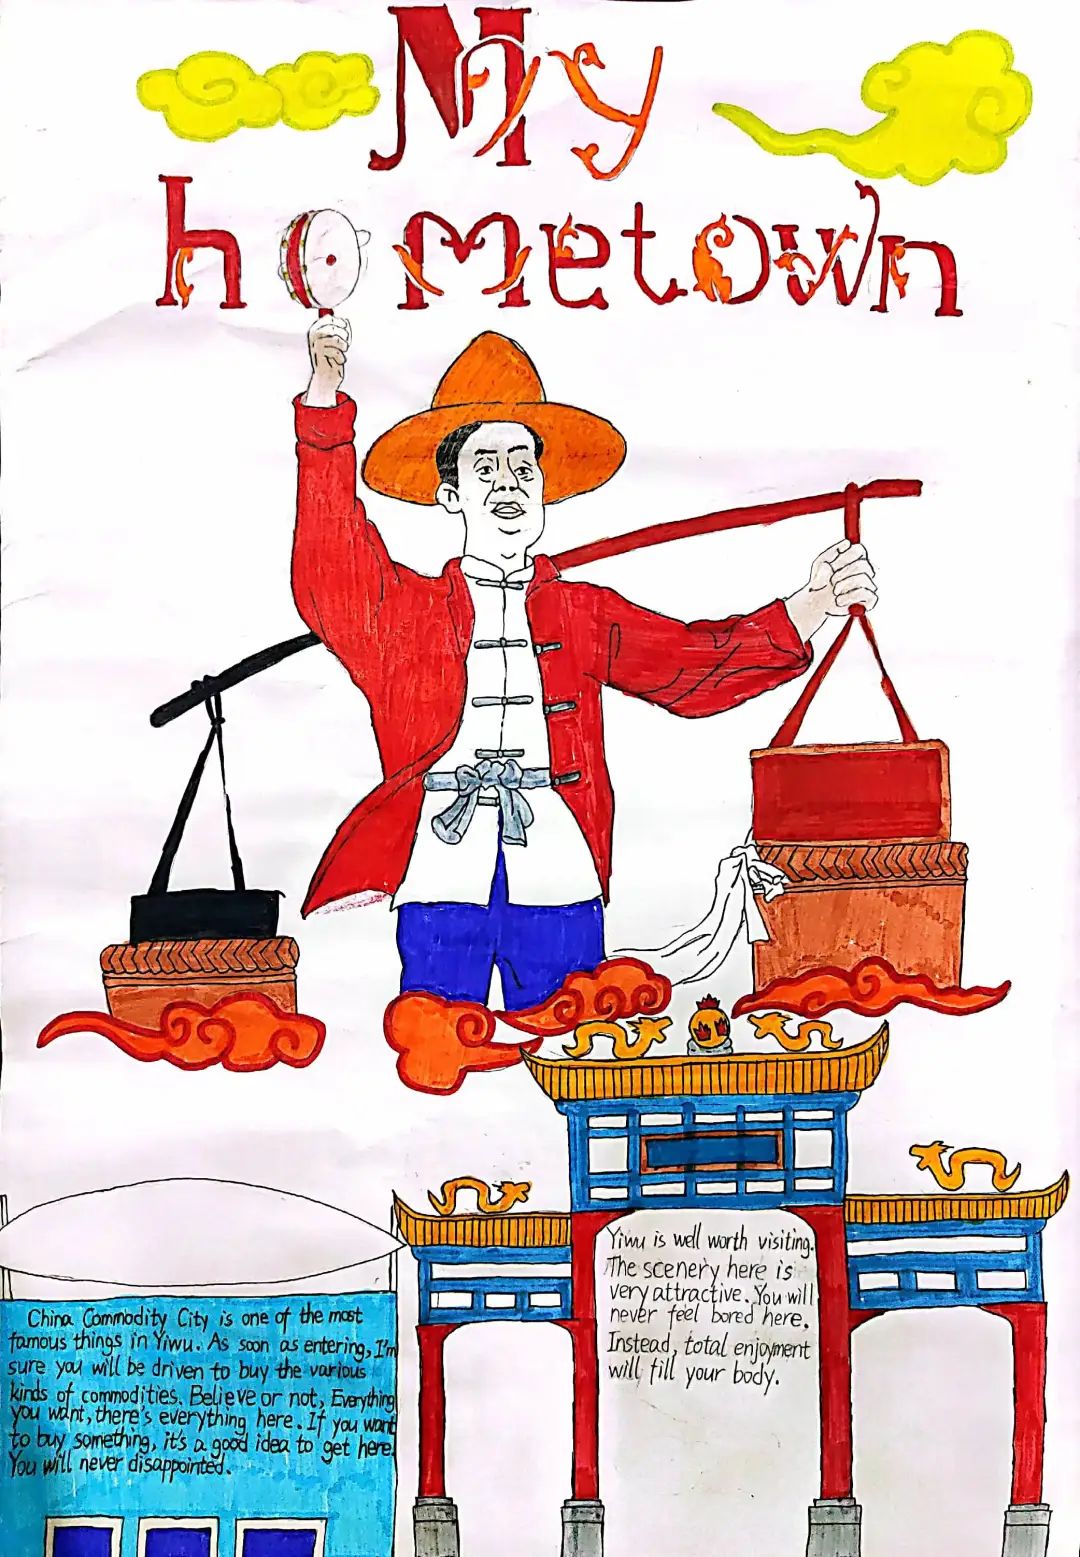 My
hometown
Yiwu is well worth visiting.
The scenery here is
very attractive. You will
never feel bored here.
Instead, total enjoyment
will fill your body.
China Commodity City is one of the most
famous things in Yiwu. As soon as entering, I'm
sure you will be driven to buy the various
kinds of commodities. Believe or not, Everything
you want, there's everything here. If you want
to buy something, it's a good idea to get here.
You will never disappointed.